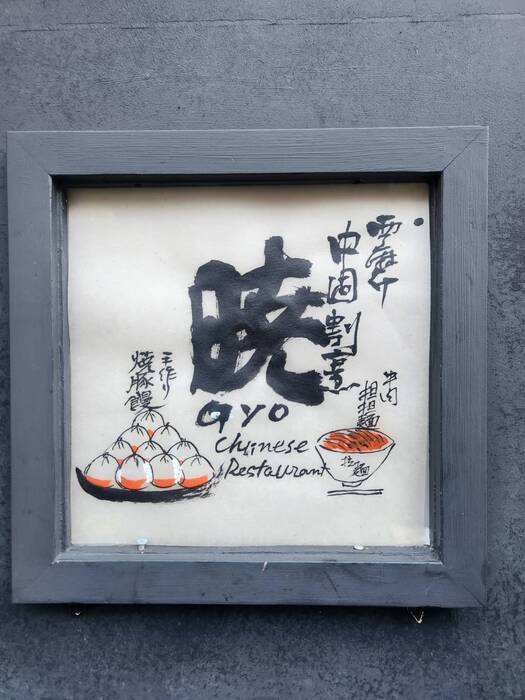 西麻布
中国割烹
暁
Gyo
Chinese
Restaurant
手作り
焼豚饅
牛肉
担担麺